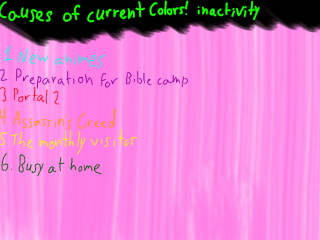 Causes of current Colors! inactivity
1 New animes
2 Preparation for Bible camp
3 Portal 2
4 Assassins Creed
5 The monthly visitor
6. Busy at home